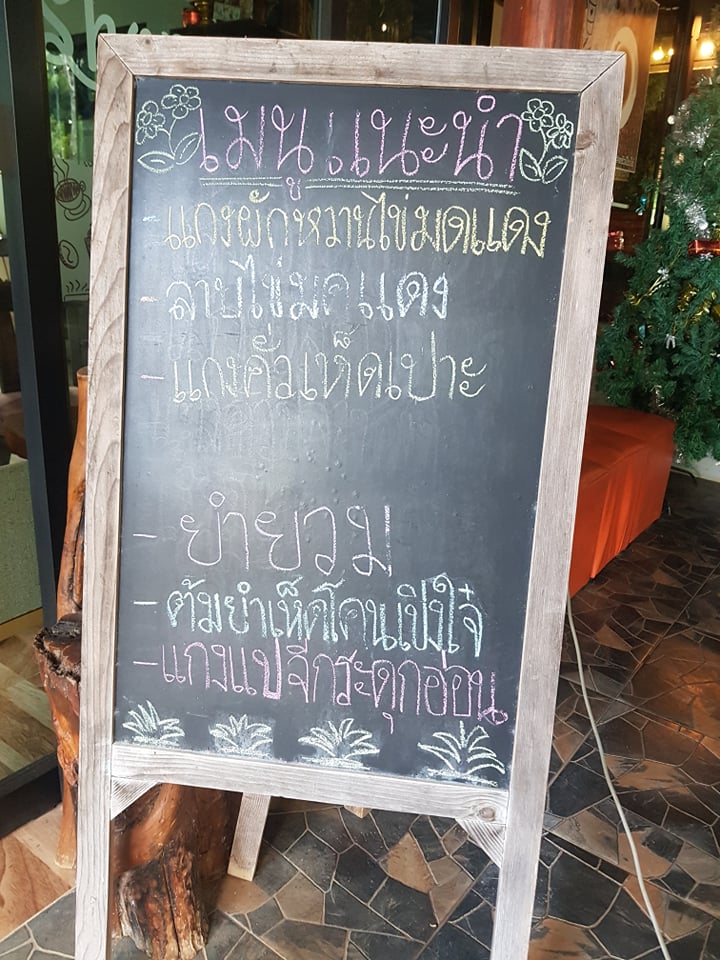 Sh
เมนู.แนะนำ
- แกงผักหวานไข่มดแดง
- ลาบไข่มดแดง
- แกงคั่วเห็ดเปาะ
- ยำยวม
- ต้มยำเห็ดโคนเปิงใจ๋
- แกงแปจีกระดุกอ่อน